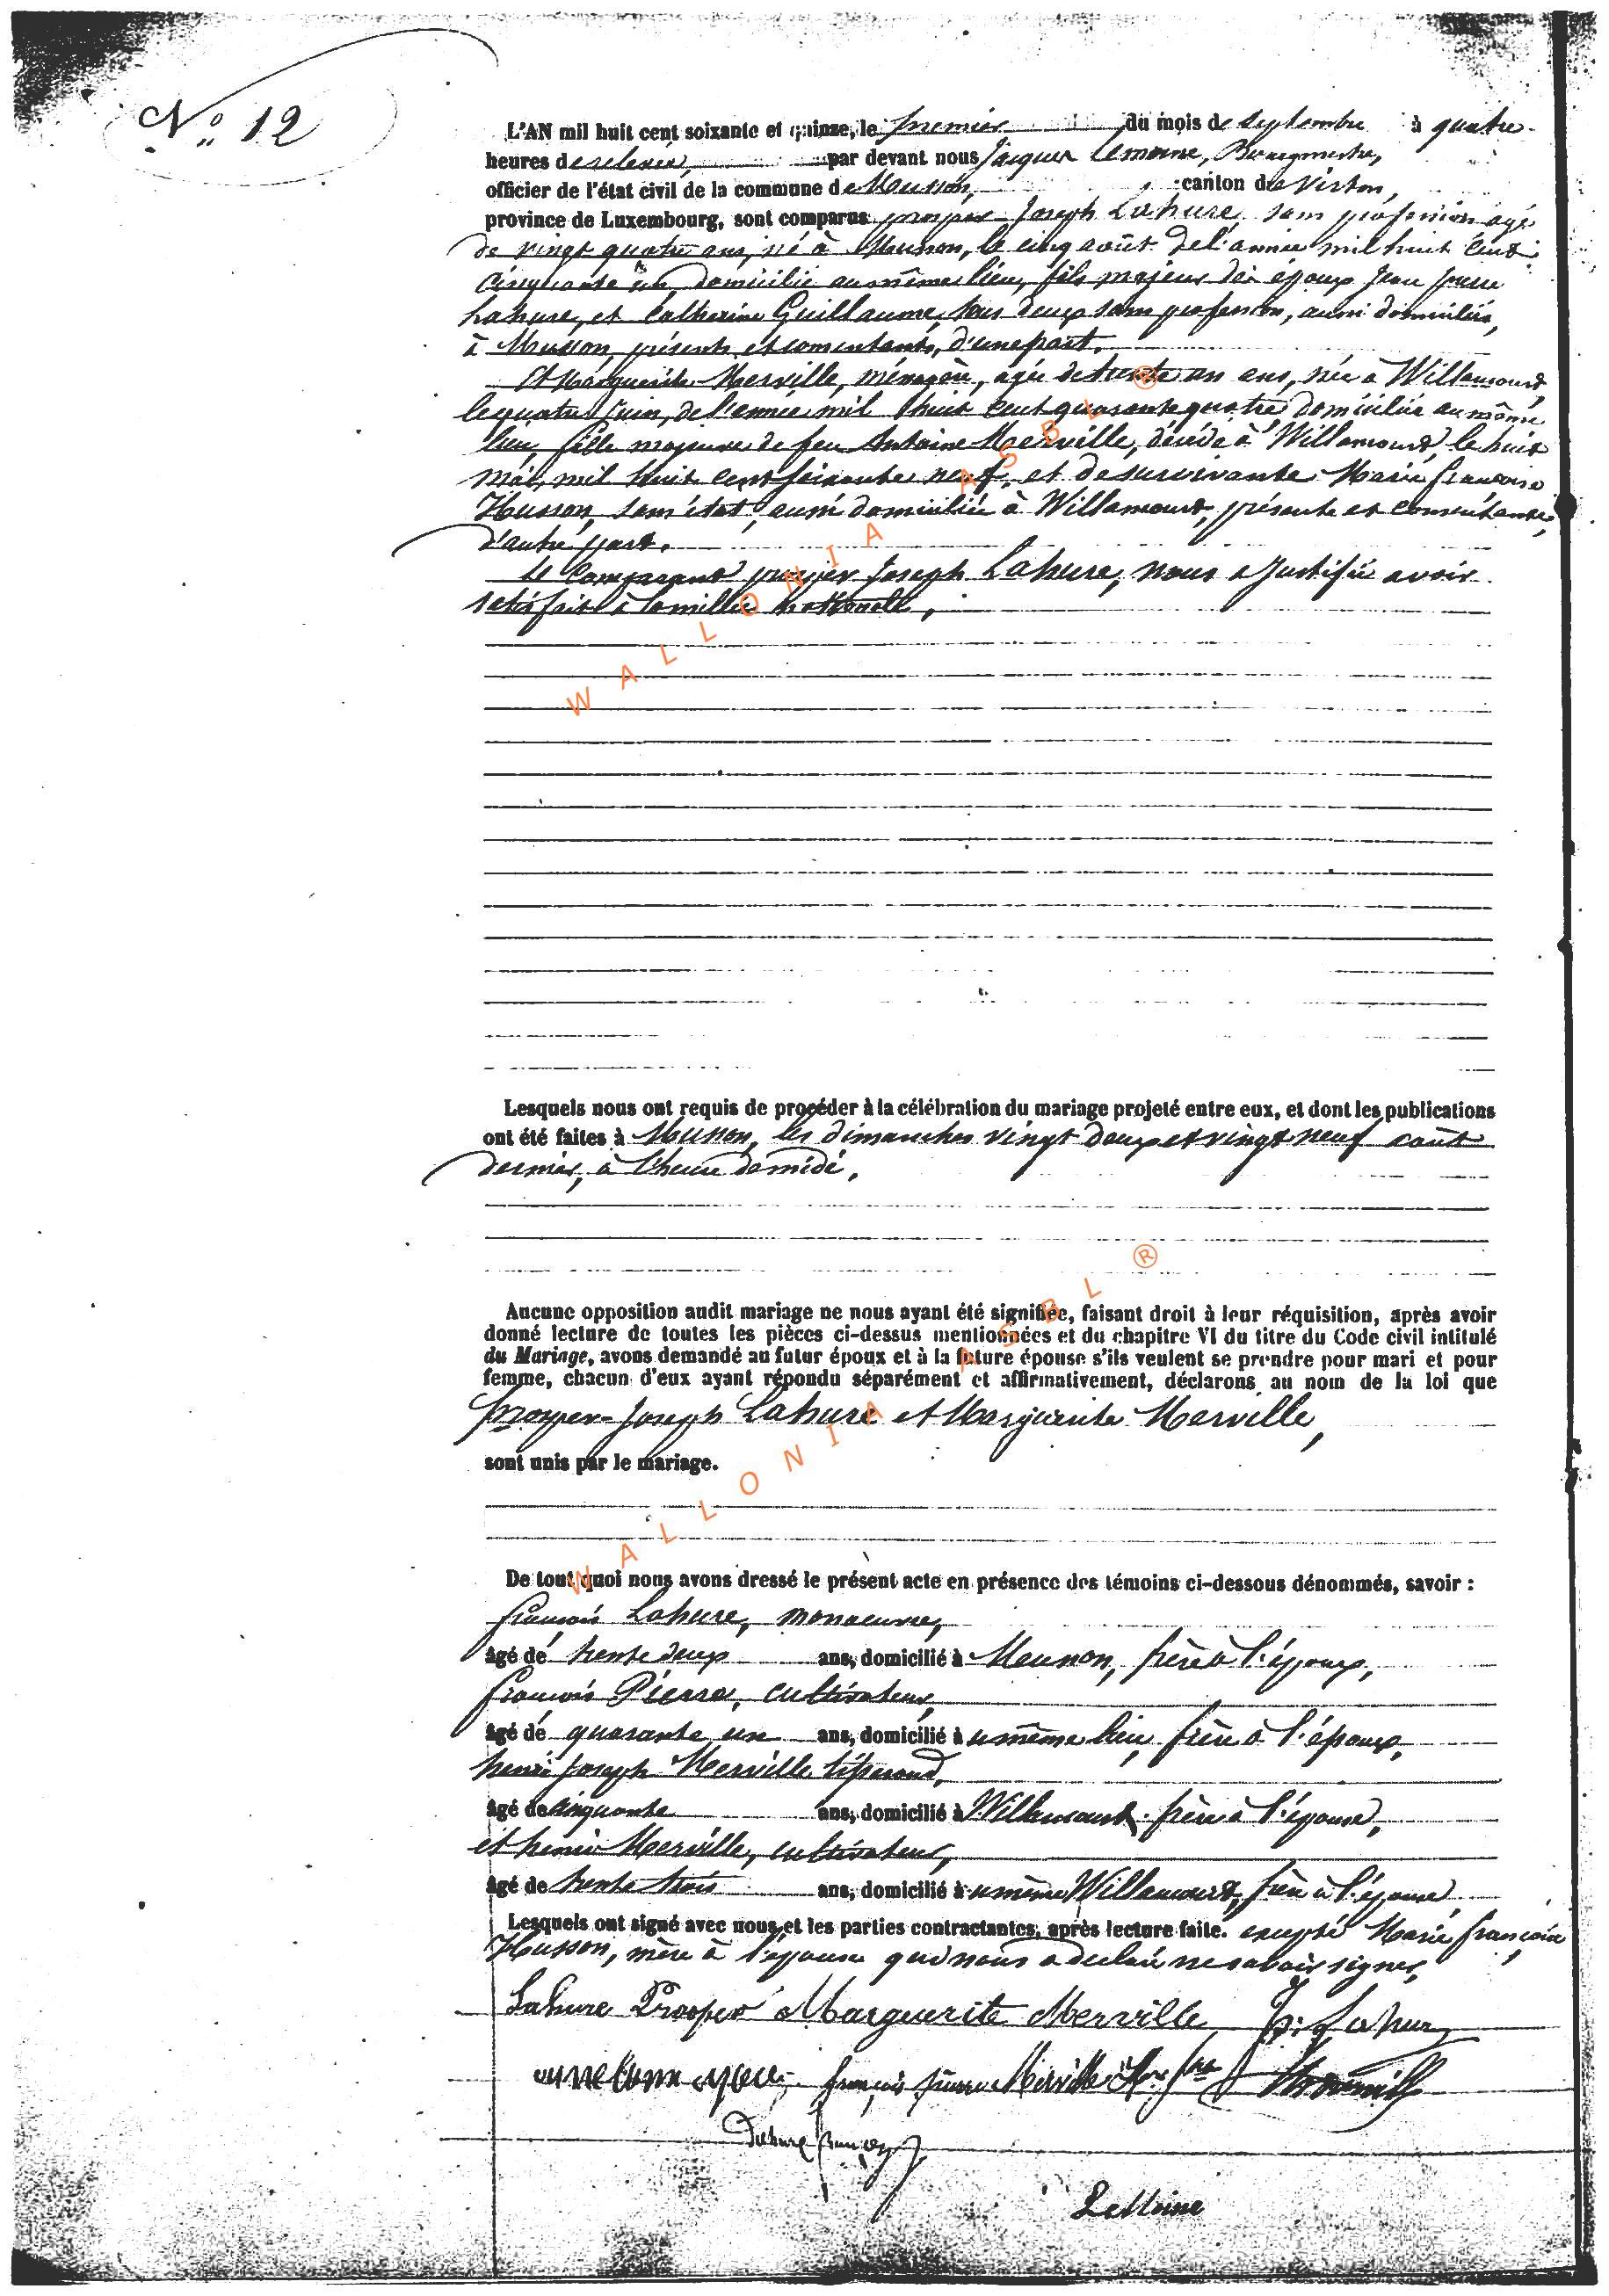 N° 12
L'AN mil huit cent soixante et quinze, le premier du mois de septembre à quatre
heures de relevée, par devant nous Jacques Lemoine, Bourgmestre,
officier de l'état civil de la commune de Musson, canton de Virton,
province de Luxembourg, sont comparus prosper Joseph Lahure, sans profession agé
de vingt quatre ans, né à Musson, le cinq août de l'année mil huit cent
cinquante un, domicilié au même lieu, fils majeur des époux Jean
Lahure, et Catherine Guillaume, tous deux sans profession, aussi domiciliés,
à Musson, présents et consentants, d'une part.
Et Marguerite Merville, ménagère, agée de trente un ans, née à Willancourt,
le quatre Juin, de l'année mil huit cent quarante quatre domiciliée au même
lieu, fille majeure de feu Antoine Merville, décédé à Willancourt, le huit
mai, mil huit cent soixante neuf, et de survivante Marie françoise
Husson, sans état, aussi domiciliée à Willancourt, présente et consentante,
d'autre part.
Le Comparant prosper Joseph Lahure, nous a Justifié avoir
satisfait à la milice nationale,
Lesquels nous ont requis de procéder à la célébration du mariage projeté entre eux, et dont les publications
ont été faites à Musson, les dimanches vingt deux et vingt neuf août
dernier, à l'heure de midi,
Aucune opposition audit mariage ne nous ayant été signifiée, faisant droit à leur réquisition, après avoir
donné lecture de toutes les pièces ci-dessus mentionnées et du chapitre VI du titre du Code civil intitulé
du Mariage, avons demandé au futur époux et à la future épouse s'ils veulent se prendre pour mari et pour
femme, chacun d'eux ayant répondu séparément et affirmativement, déclarons au nom de la loi que
prosper-Joseph Lahure et Marguerite Merville,
sont unis par le mariage.
De tout quoi nous avons dressé le présent acte en présence des témoins ci-dessous dénommés, savoir :
françois Lahure, manoeuvre,
âgé de trente deux ans, domicilié à Musson, frère à l'époux,
françois Pierre, cultivateur,
âgé de quarante un ans, domicilié à u même lieu, frère à l'époux,
henri Joseph Merville
âgé de cinquante ans, domicilié à Willancourt, frère à l'épouse,
et henri Merville, cultivateur,
âgé de trente trois ans, domicilié à u même Willancourt, frère à l'épouse,
Lesquels ont signé avec nous et les parties contractantes, après lecture faite. excepté Marie françoise
Husson, mère à l'épouse qui nous a déclaré ne savoir signer,
Lahure Prosper Marguerite Merville Lahure
françois pierre Merville
Lahure françois
LeMoine
WALLONIA ASBL ®
WALLONIA ASBL ®